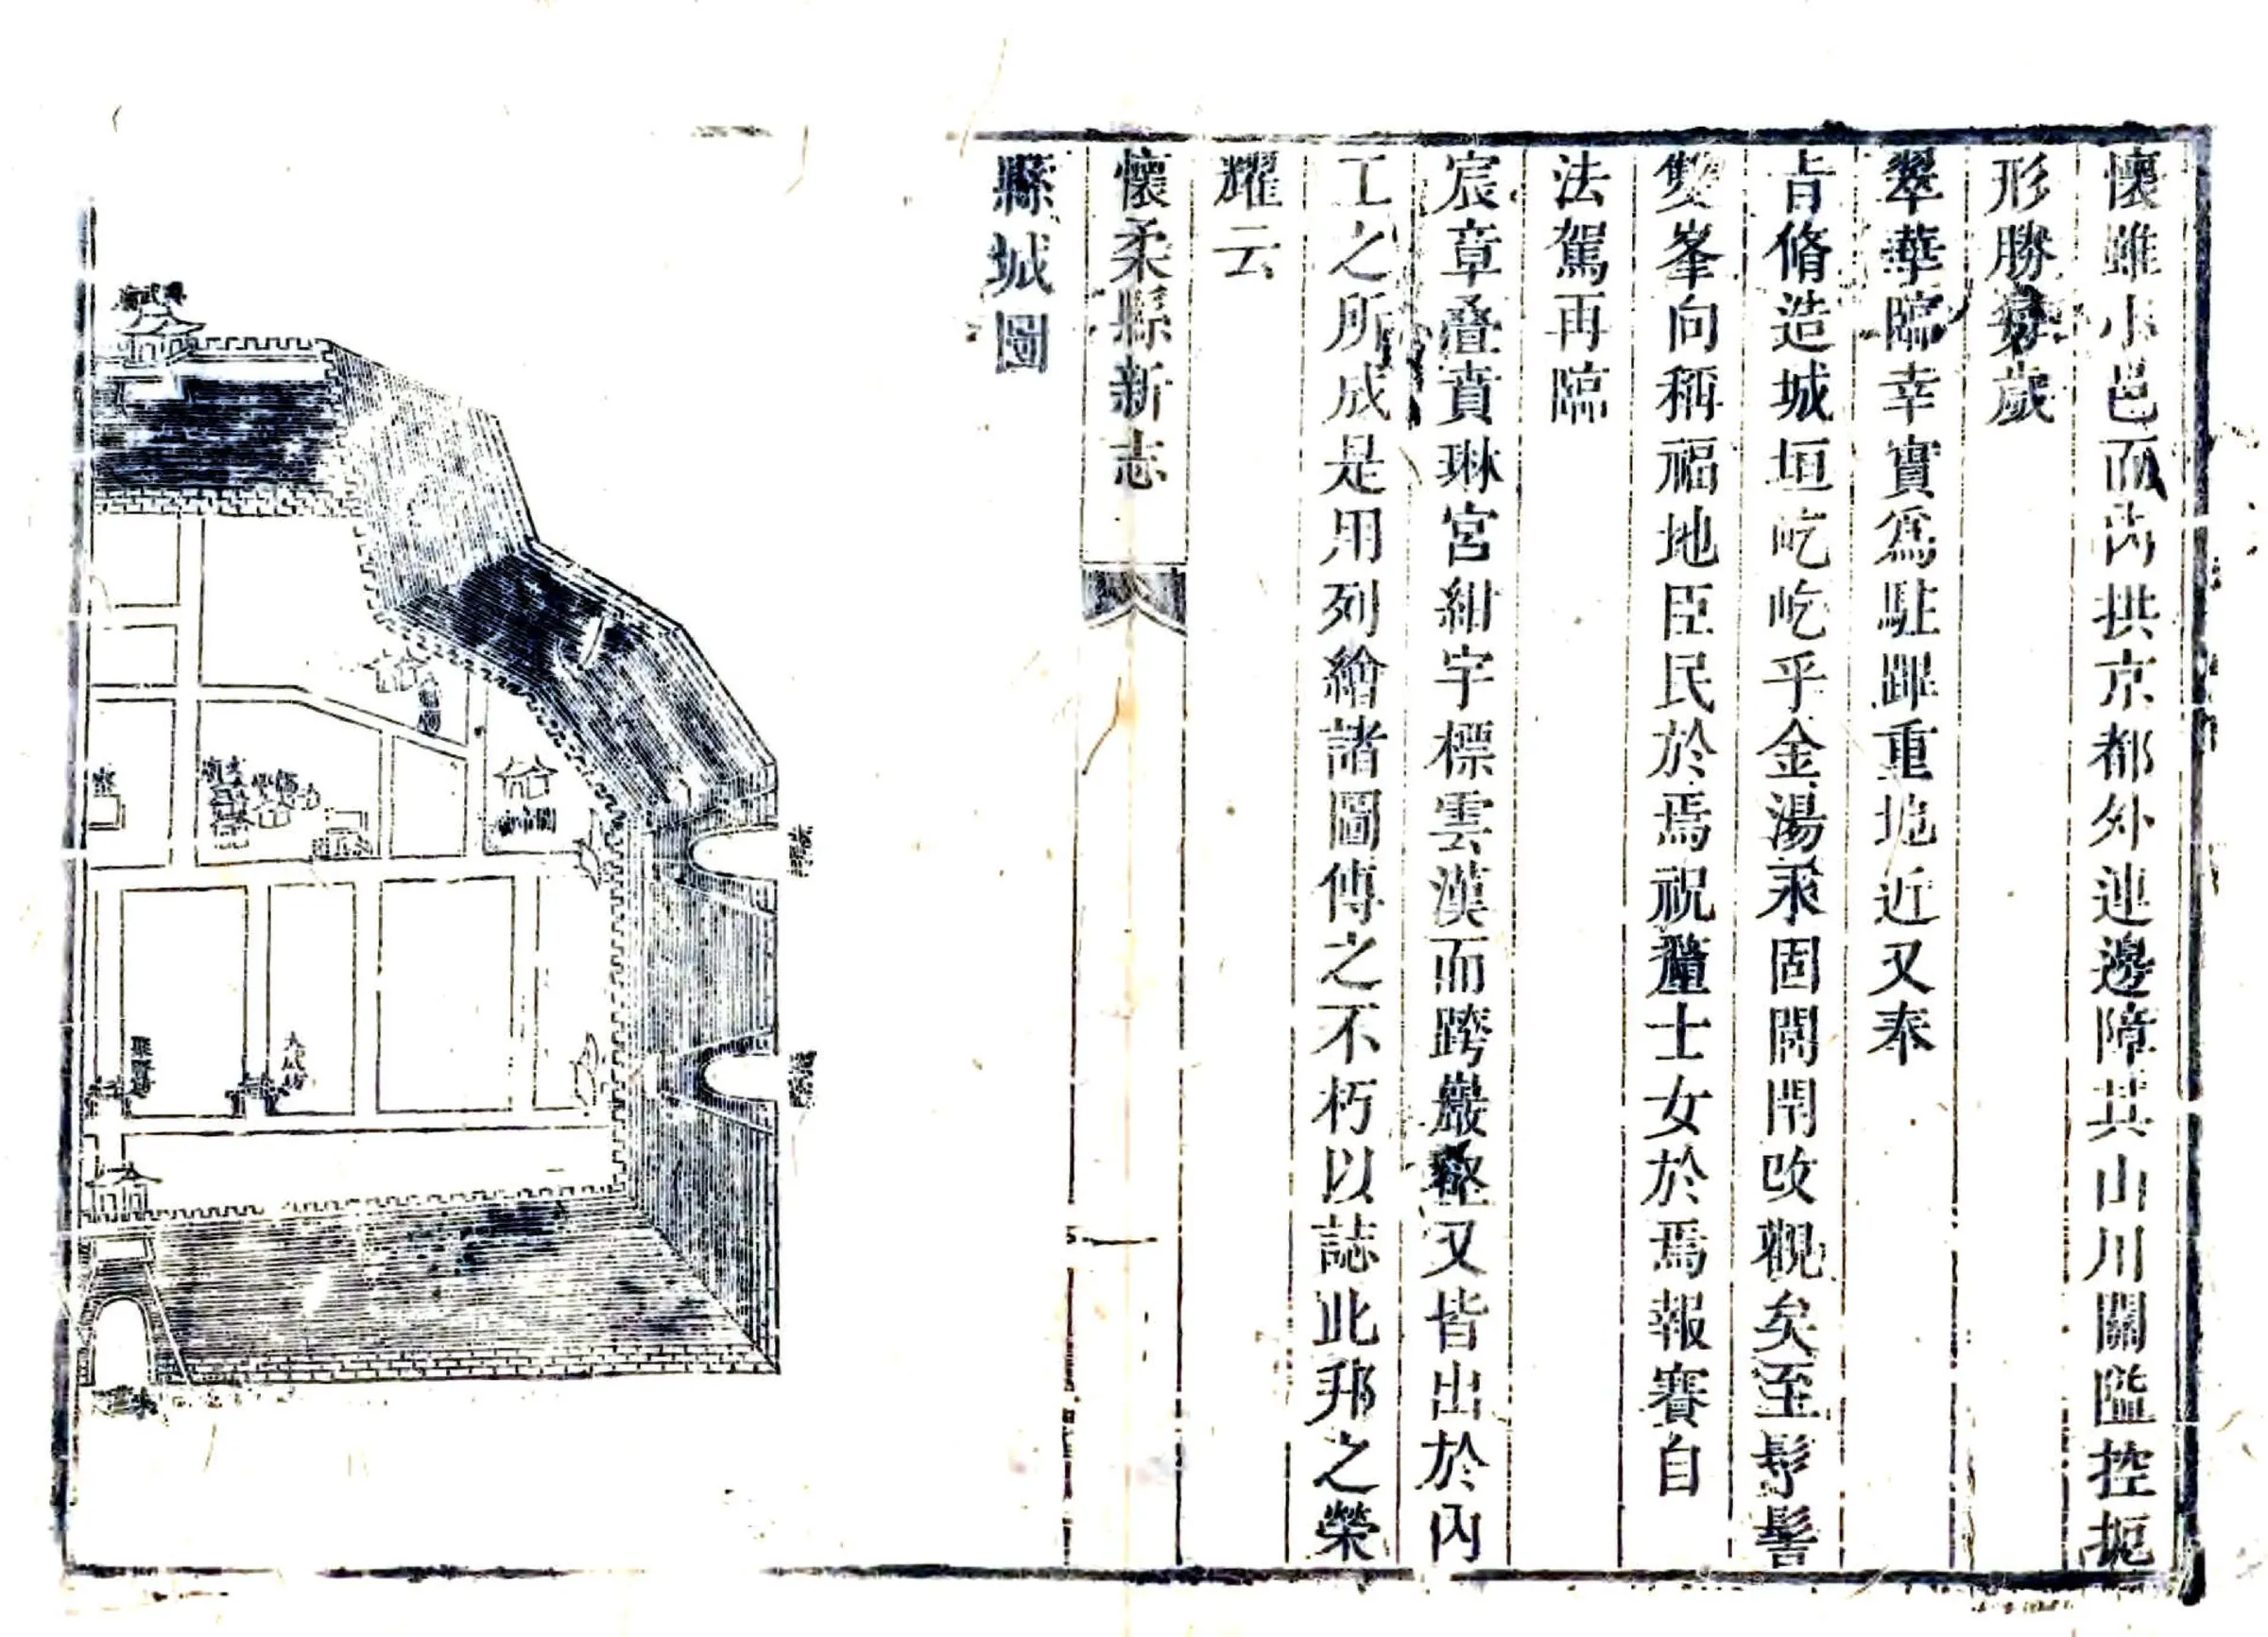 懷雖小邑而內拱京都外連邊障其山川關隘控扼
形勝每歲
翠華臨幸實爲駐蹕重地近又奉
旨脩造城垣屹屹乎金湯永固閭閈改觀矣至髻
雙峯向稱福地臣民於焉祝釐士女於焉報賽自
法駕再臨
宸章叠賁琳宮紺宇標雲漢而跨巖壑又皆出於內
工之所成是用列繪諸圖傳之不朽以誌此邦之榮
耀云
懷柔縣新志
一
縣城圖
大成坊
聚賢坊